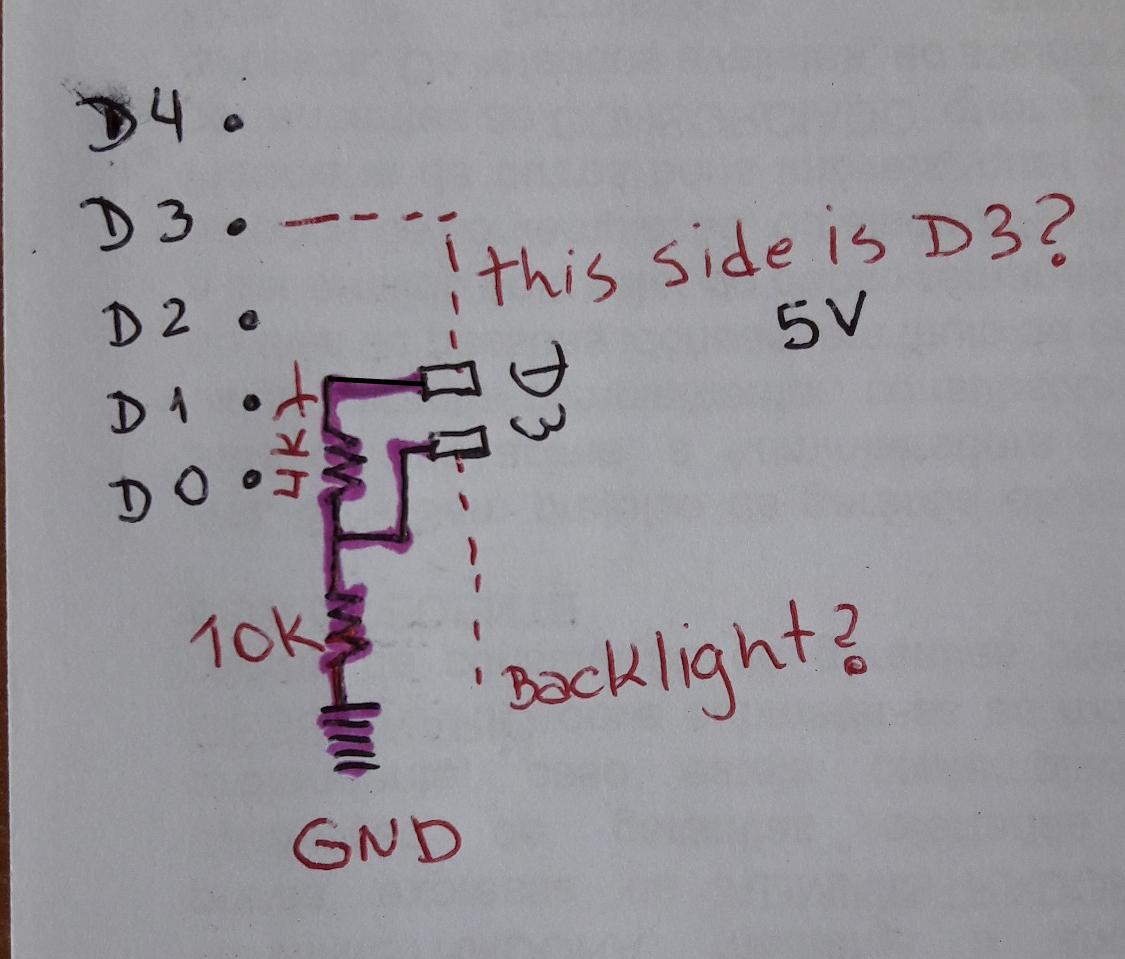 D4
D3
this side is D3?
D2
5V
D1
D0
4K7
10K
Backlight?
GND